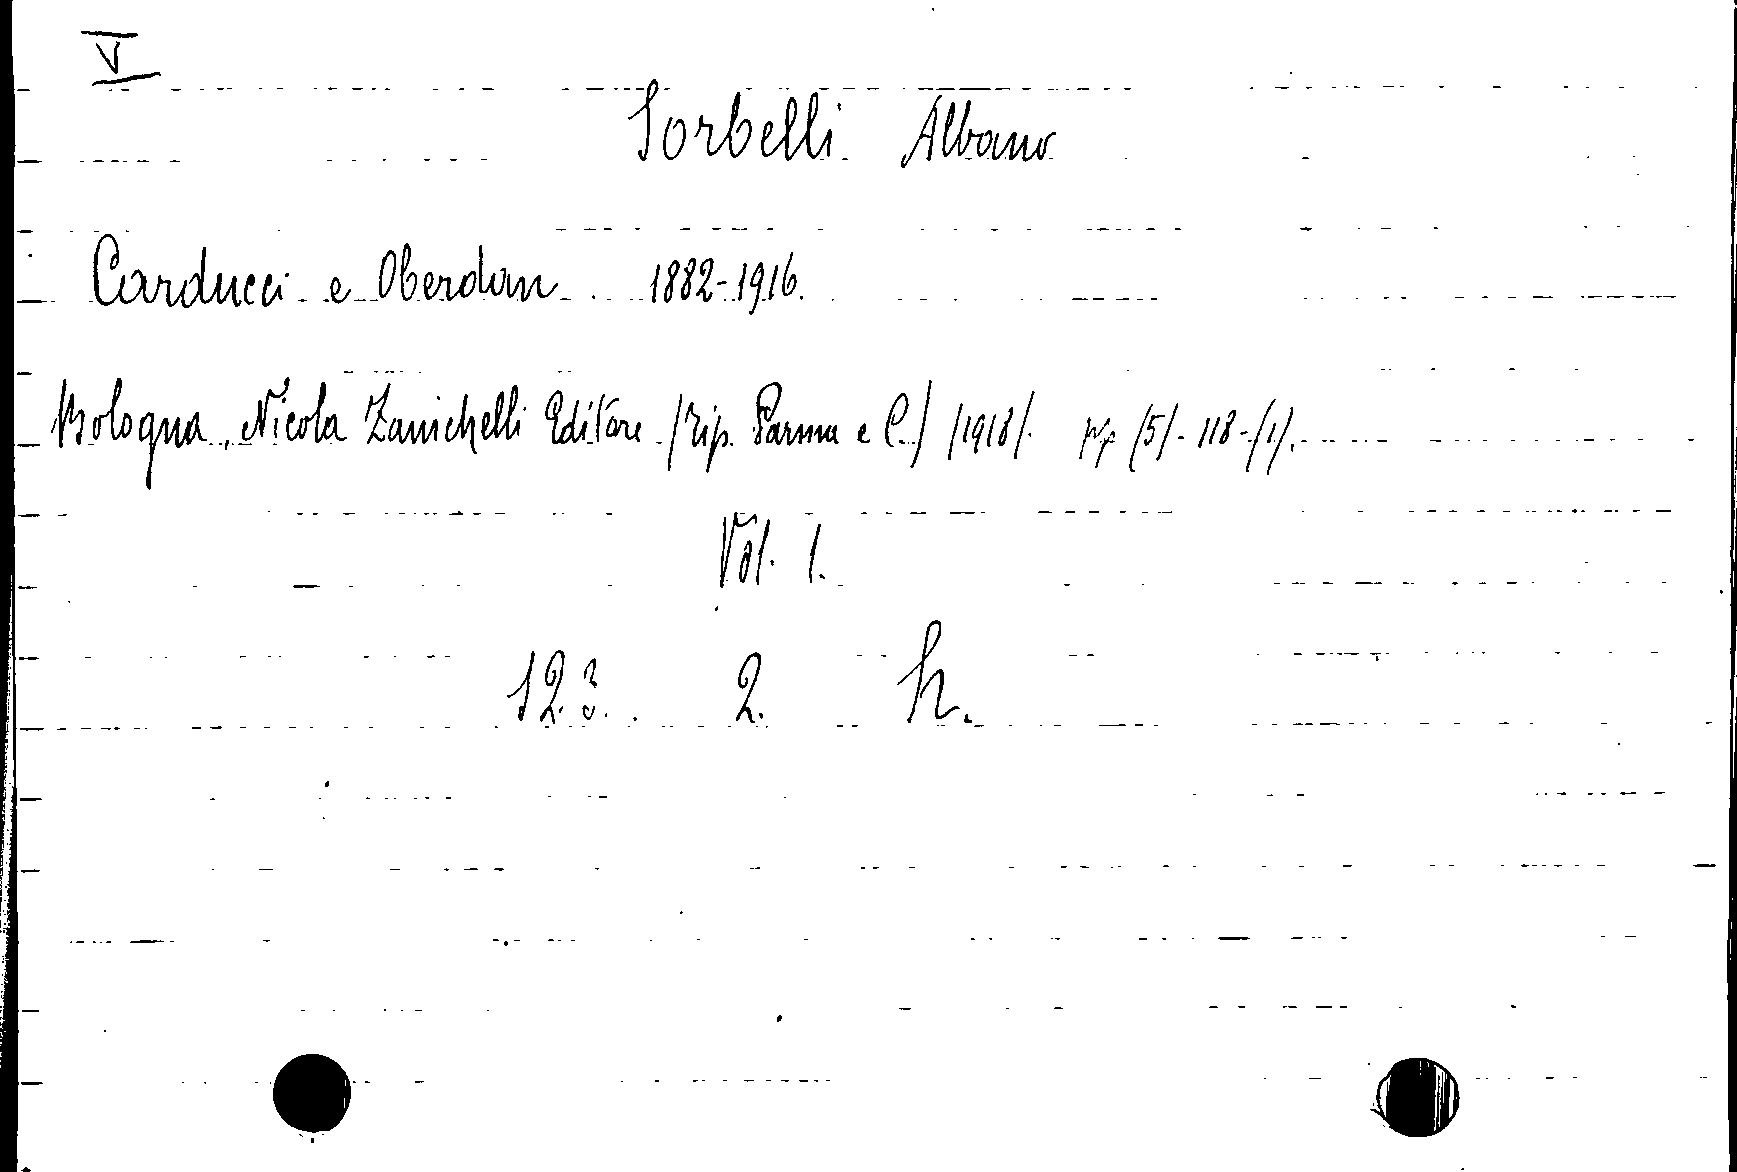 V
Sorbelli Albano
Carducci e Oberdan 1882-1916.
Bologna, Nicola Zanichelli Editore (Tip. Parma e C.) (1918). pp (5)-118-(1).
Vol. 1.
123. 2. h.